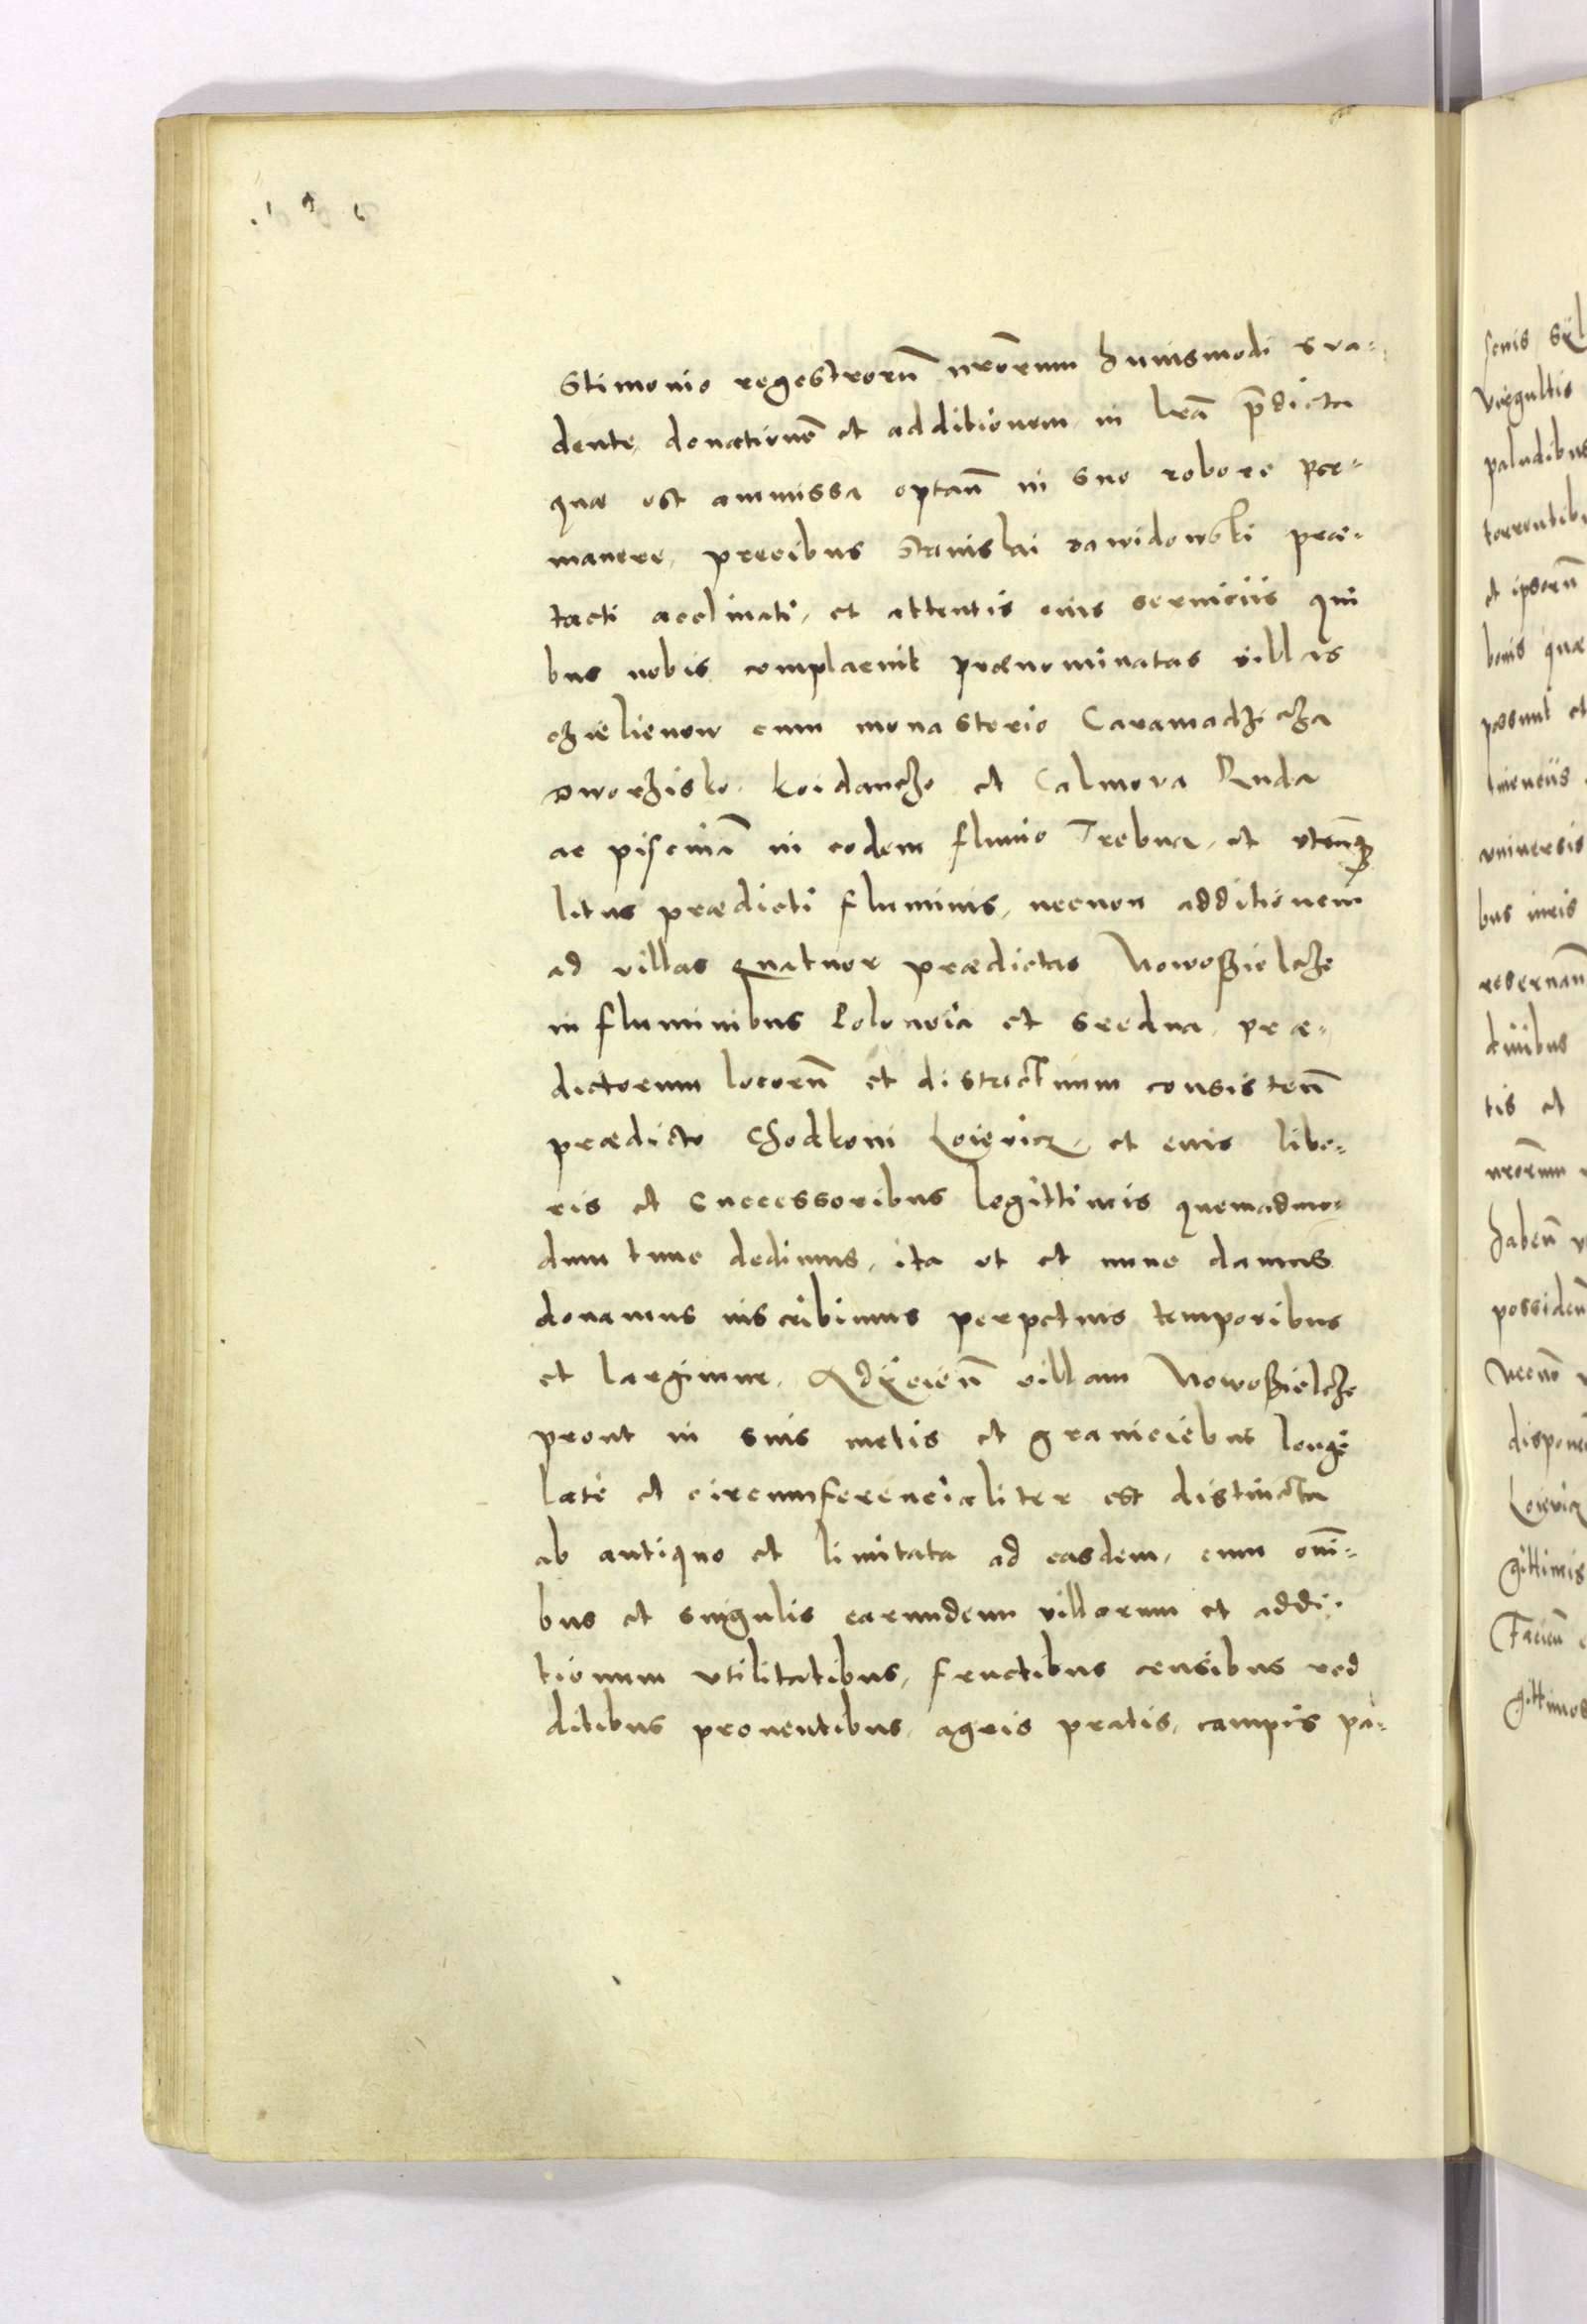 stimonio regestrorū nrōrum huiusmodi sua-
dente, donationē et additionem in lrā p̄dicta
quae est ammissa optañ in suo robore per-
manere, precibus Stanislai dawidowski prae-
tacti acclinati, et attentis eius seruiciis qui
bus nobis complacuit praenominatas villas
chielienow cum monasterio Caramadzicza
dworzisko. koidancze et Calmova Ruda
ac piscinā in eodem fluuio Trebur, et utrūq
litus praedicti fluminis, necnon additionem
ad villas quatuor praedictas Nowoszielcze
in fluminibus Polonoia et Sredna, prae-
dictorum locorū et districtuum consisteñ
praedicto Chodkoni Loievicz, et euis libe-
ris et successoribus legittimis quemadmo-
dum tunc dedimus, ita ut et nunc damus
donamus inscribimus perpetuis temporibus
et largimur. Adÿcieñ villam Nowoszielcze
prout in suis metis et graniciebus longe
late et circumferencialiter est distincta
ab antiquo et limitata ad easdem, cum omī-
bus et singulis earundem villarum et addi-
tionum utilitatibus, fructibus censibus red
ditibus prouentibus, agris pratis, campis pa-
senis syl
virgultis
paludibus
torrentibu
et ipsorū
bonis quae
possunt et
uniuersis
bus iuris
reseruañ
tis et
nrōrum
habeñ
possideñ
Necnō
dispone
Loievicz
gittimis
Facieñ
gittimos